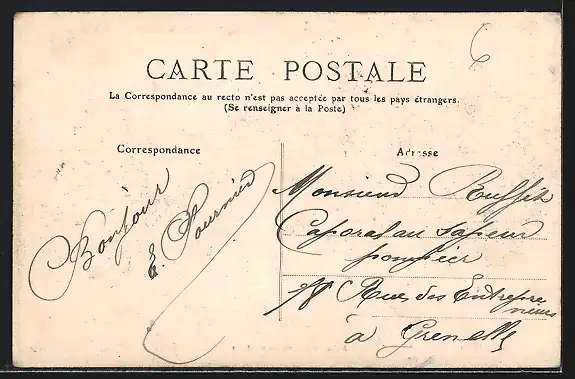 6
CARTE POSTALE
La Correspondance au recto n'est pas acceptée par tous les pays étrangers.
(Se renseigner à la Poste)
Correspondance
Bonjour
E. Fournier
Adresse
Monsieur Ruffit
Caporal au Sapeur
pompier
Rue des Entrepre
neurs
à Grenelle